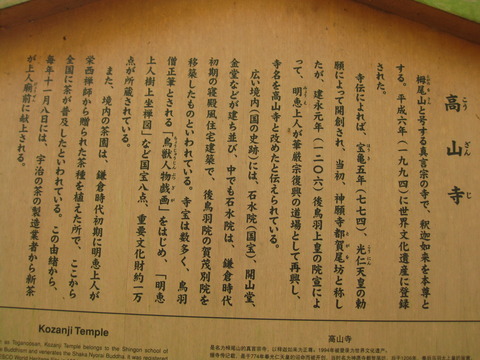 高山寺
こう ざん じ
栂尾山と号する真言宗の寺で、釈迦如来を本尊と
する。平成六年(一九九四)に世界文化遺産に登録
された。
寺伝によれば、宝亀五年(七七四)、光仁天皇の勅
願によって開創され、当初、神願寺都賀尾坊と称し
たが、建永元年(一二〇六)後鳥羽上皇の院宣によ
って、明恵上人が華厳宗復興の道場として再興し、
寺名を高山寺と改めたと伝えられている。
広い境内(国の史跡)には、石水院(国宝)、開山堂、
金堂などが建ち並び、中でも石水院は、鎌倉時代
初期の寝殿風住宅建築で、後鳥羽院の賀茂別院を
移築したものといわれている。寺宝は数多く、鳥羽
僧正筆とされる「鳥獣人物戯画」をはじめ、「明恵
上人樹上坐禅図」など国宝八点、重要文化財約一万
点が所蔵されている。
また、境内の茶園は、鎌倉時代初期に明恵上人が
栄西禅師から贈られた茶種を植えた所で、ここから
全国に茶が普及したといわれている。この由緒から、
毎年十一月八日には、宇治の茶の製造業者から新茶
が上人廟前に献上される。
Kozanji Temple
as Toganoosan, Kozanji Temple belongs to the Shingon school of
Buddhism and venerates the Shaka Nyorai Buddha. It was registered
高山寺